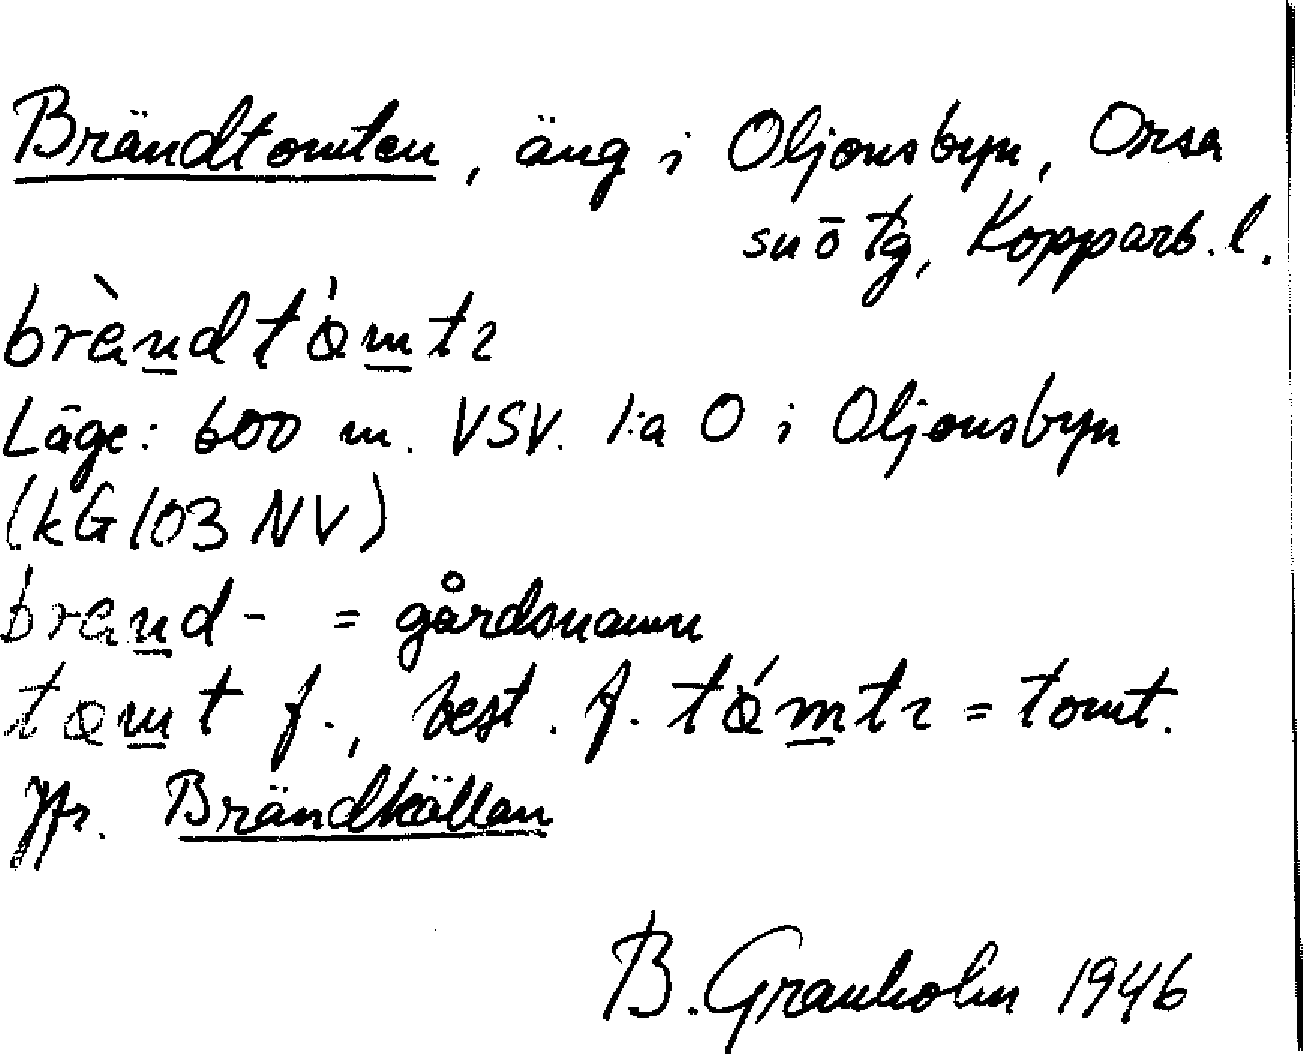 Brändtomten, äng i Oljonsbyn, Orsa
sn ö tg, Kopparb. l.
brὲndtǿmtɿ
Läge: 600 m. VSV. 1:a O i Oljonsbyn
(kG 103 NV)
brɛnd- = gårdsnamn
tømt f., best. f. tǿmtɿ = tomt.
Jfr. Brändkällan
B. Granholm 1946